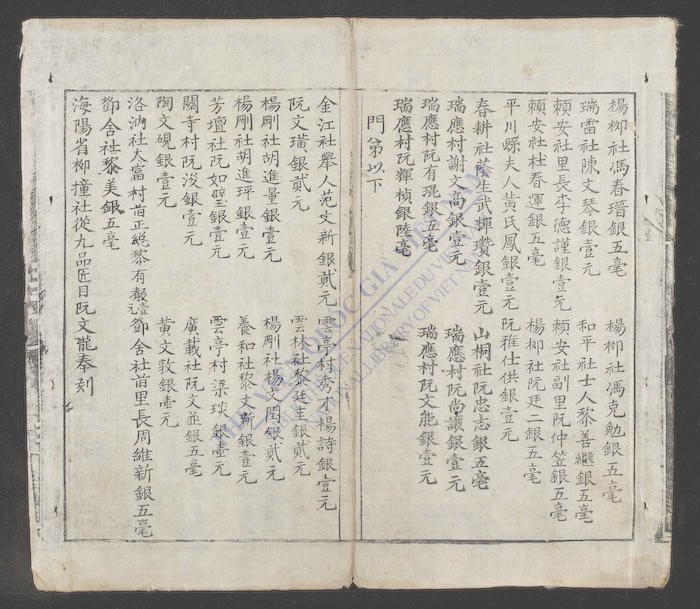 楊柳社馮春瑨銀五毫　楊柳社馮克勉銀五毫
瑞雷社陳文琴銀壹元　和平社士人黎善繼銀五毫
賴安社里長李德謹銀壹元　賴安社副里阮仲笠銀五毫
賴安社杜春運銀五毫　楊柳社阮廷二銀五毫
平川縣夫人黃氏鳳銀壹元　阮雅仕供銀壹元
春耕社蔭生武輝瓚銀壹元　山桐社阮忠志銀五毫
瑞應村謝文高銀壹元　瑞應村阮尚譲銀壹元
瑞應村阮有琨銀五毫　瑞應村阮文能銀壹元
瑞應村阮輝楨銀陸毫
門弟以下
金江社舉人范文新銀貳元　雲亭村秀才楊詩銀壹元
阮文璜銀貳元　雲林社黎廷圭銀貳元
楊剛社胡進量銀壹元　楊剛社楊文閏銀貳元
楊剛社胡進坪銀壹元　養和社黎文新銀壹元
芳壇社阮如璧銀壹元　雲亭村梁琰銀壹元
關寺村阮浚銀壹元　廣載社阮文並銀五毫
陶文硯銀壹元　黃文敦銀壹元
洛汭社大富村首正総黎有　壹元　鄧舍社首里長周維新銀五毫
鄧舍社黎美銀五毫
海陽省柳撞社從九品匠目阮文龍奉刻
THƯ VIỆN QUỐC GIA VIỆT NAM
BIBLIOTHÈQUE NATIONALE DU VIETNAM
NATIONAL LIBRARY OF VIETNAM